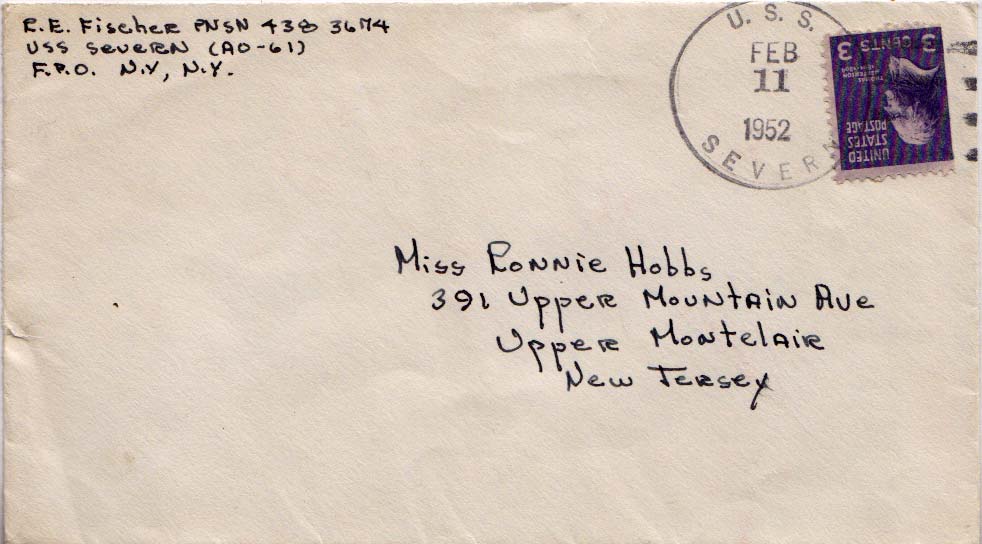 R.E. Fischer PNSN 438 3674
USS Severn (AO-61)
F.P.O. N.Y, N.Y.
U. S. S.
FEB
11
1952
SEVERN
3 CENTS 3
THOMAS
JEFFERSON
UNITED
STATES
POSTAGE
Miss Ronnie Hobbs
391 Upper Mountain Ave
Upper Montclair
New Jersey